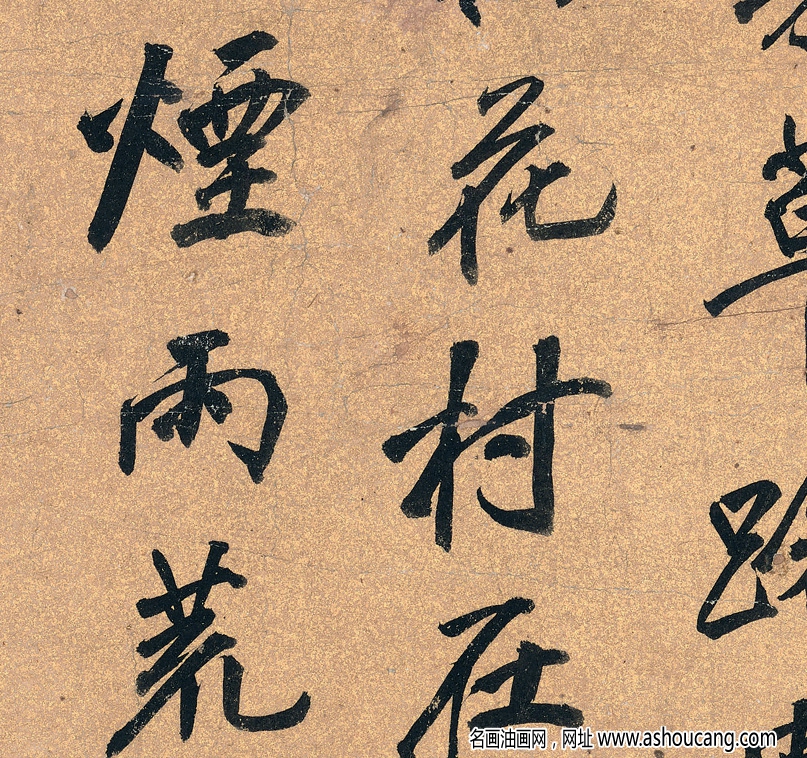 草路
花村在
煙雨荒
名画油画网，网址 www.ashoucang.com